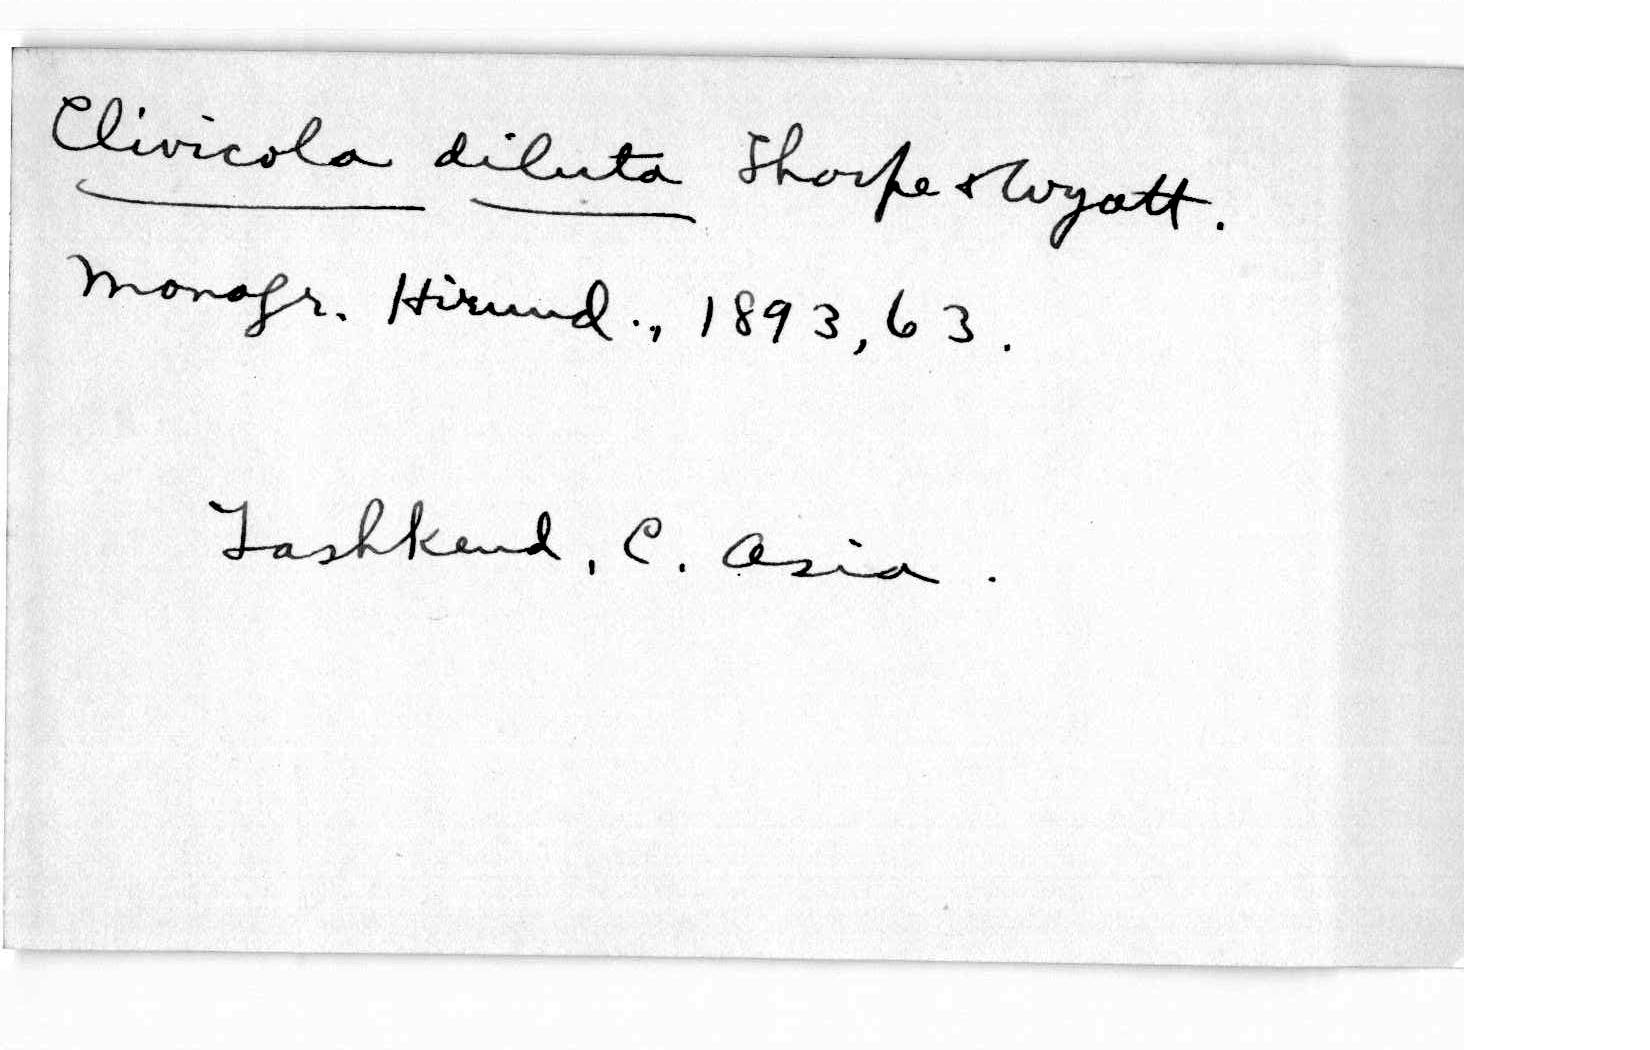 Clivicola diluta Sharpe & Wyatt.
Monogr. Hirund., 1893, 63.
Tashkend, C. Asia.